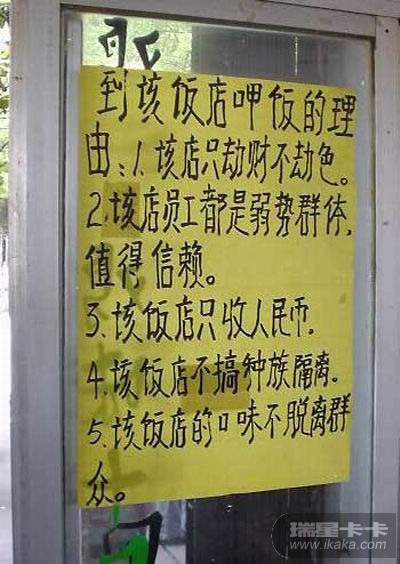 到该饭店呷饭的理
由:1.该店只劫财不劫色。
2.该店员工都是弱势群体,
值得信赖。
3.该饭店只收人民币.
4.该饭店不搞种族隔离。
5.该饭店的口味不脱离群
众。
瑞星卡卡
www.ikaka.com